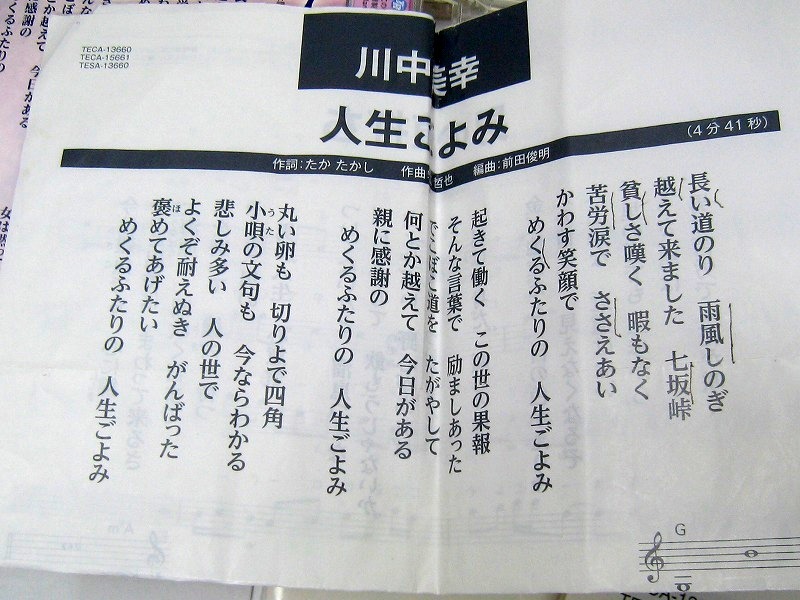 TECA-13660
TECA-15661
TESA-13660
川中美幸
人生ごよみ
(4分41秒)
作詞:たか たかし 作曲: 哲也 編曲:前田俊明
長い道のり 雨風しのぎ
越えて来ました 七坂峠
貧しさ嘆く 暇もなく
苦労涙で ささえあい
かわす笑顔で
めくるふたりの 人生ごよみ
起きて働く この世の果報
そんな言葉で 励ましあった
でこぼこ道を たがやして
何とか越えて 今日がある
親に感謝の
めくるふたりの 人生ごよみ
丸い卵も 切りよで四角
小唄の文句も 今ならわかる
うた
悲しみ多い 人の世で
よくぞ耐えぬき がんばった
褒めてあげたい
ほ
めくるふたりの 人生ごよみ
G
Am
とか越えて 今日がある
感謝の
くるふたりの